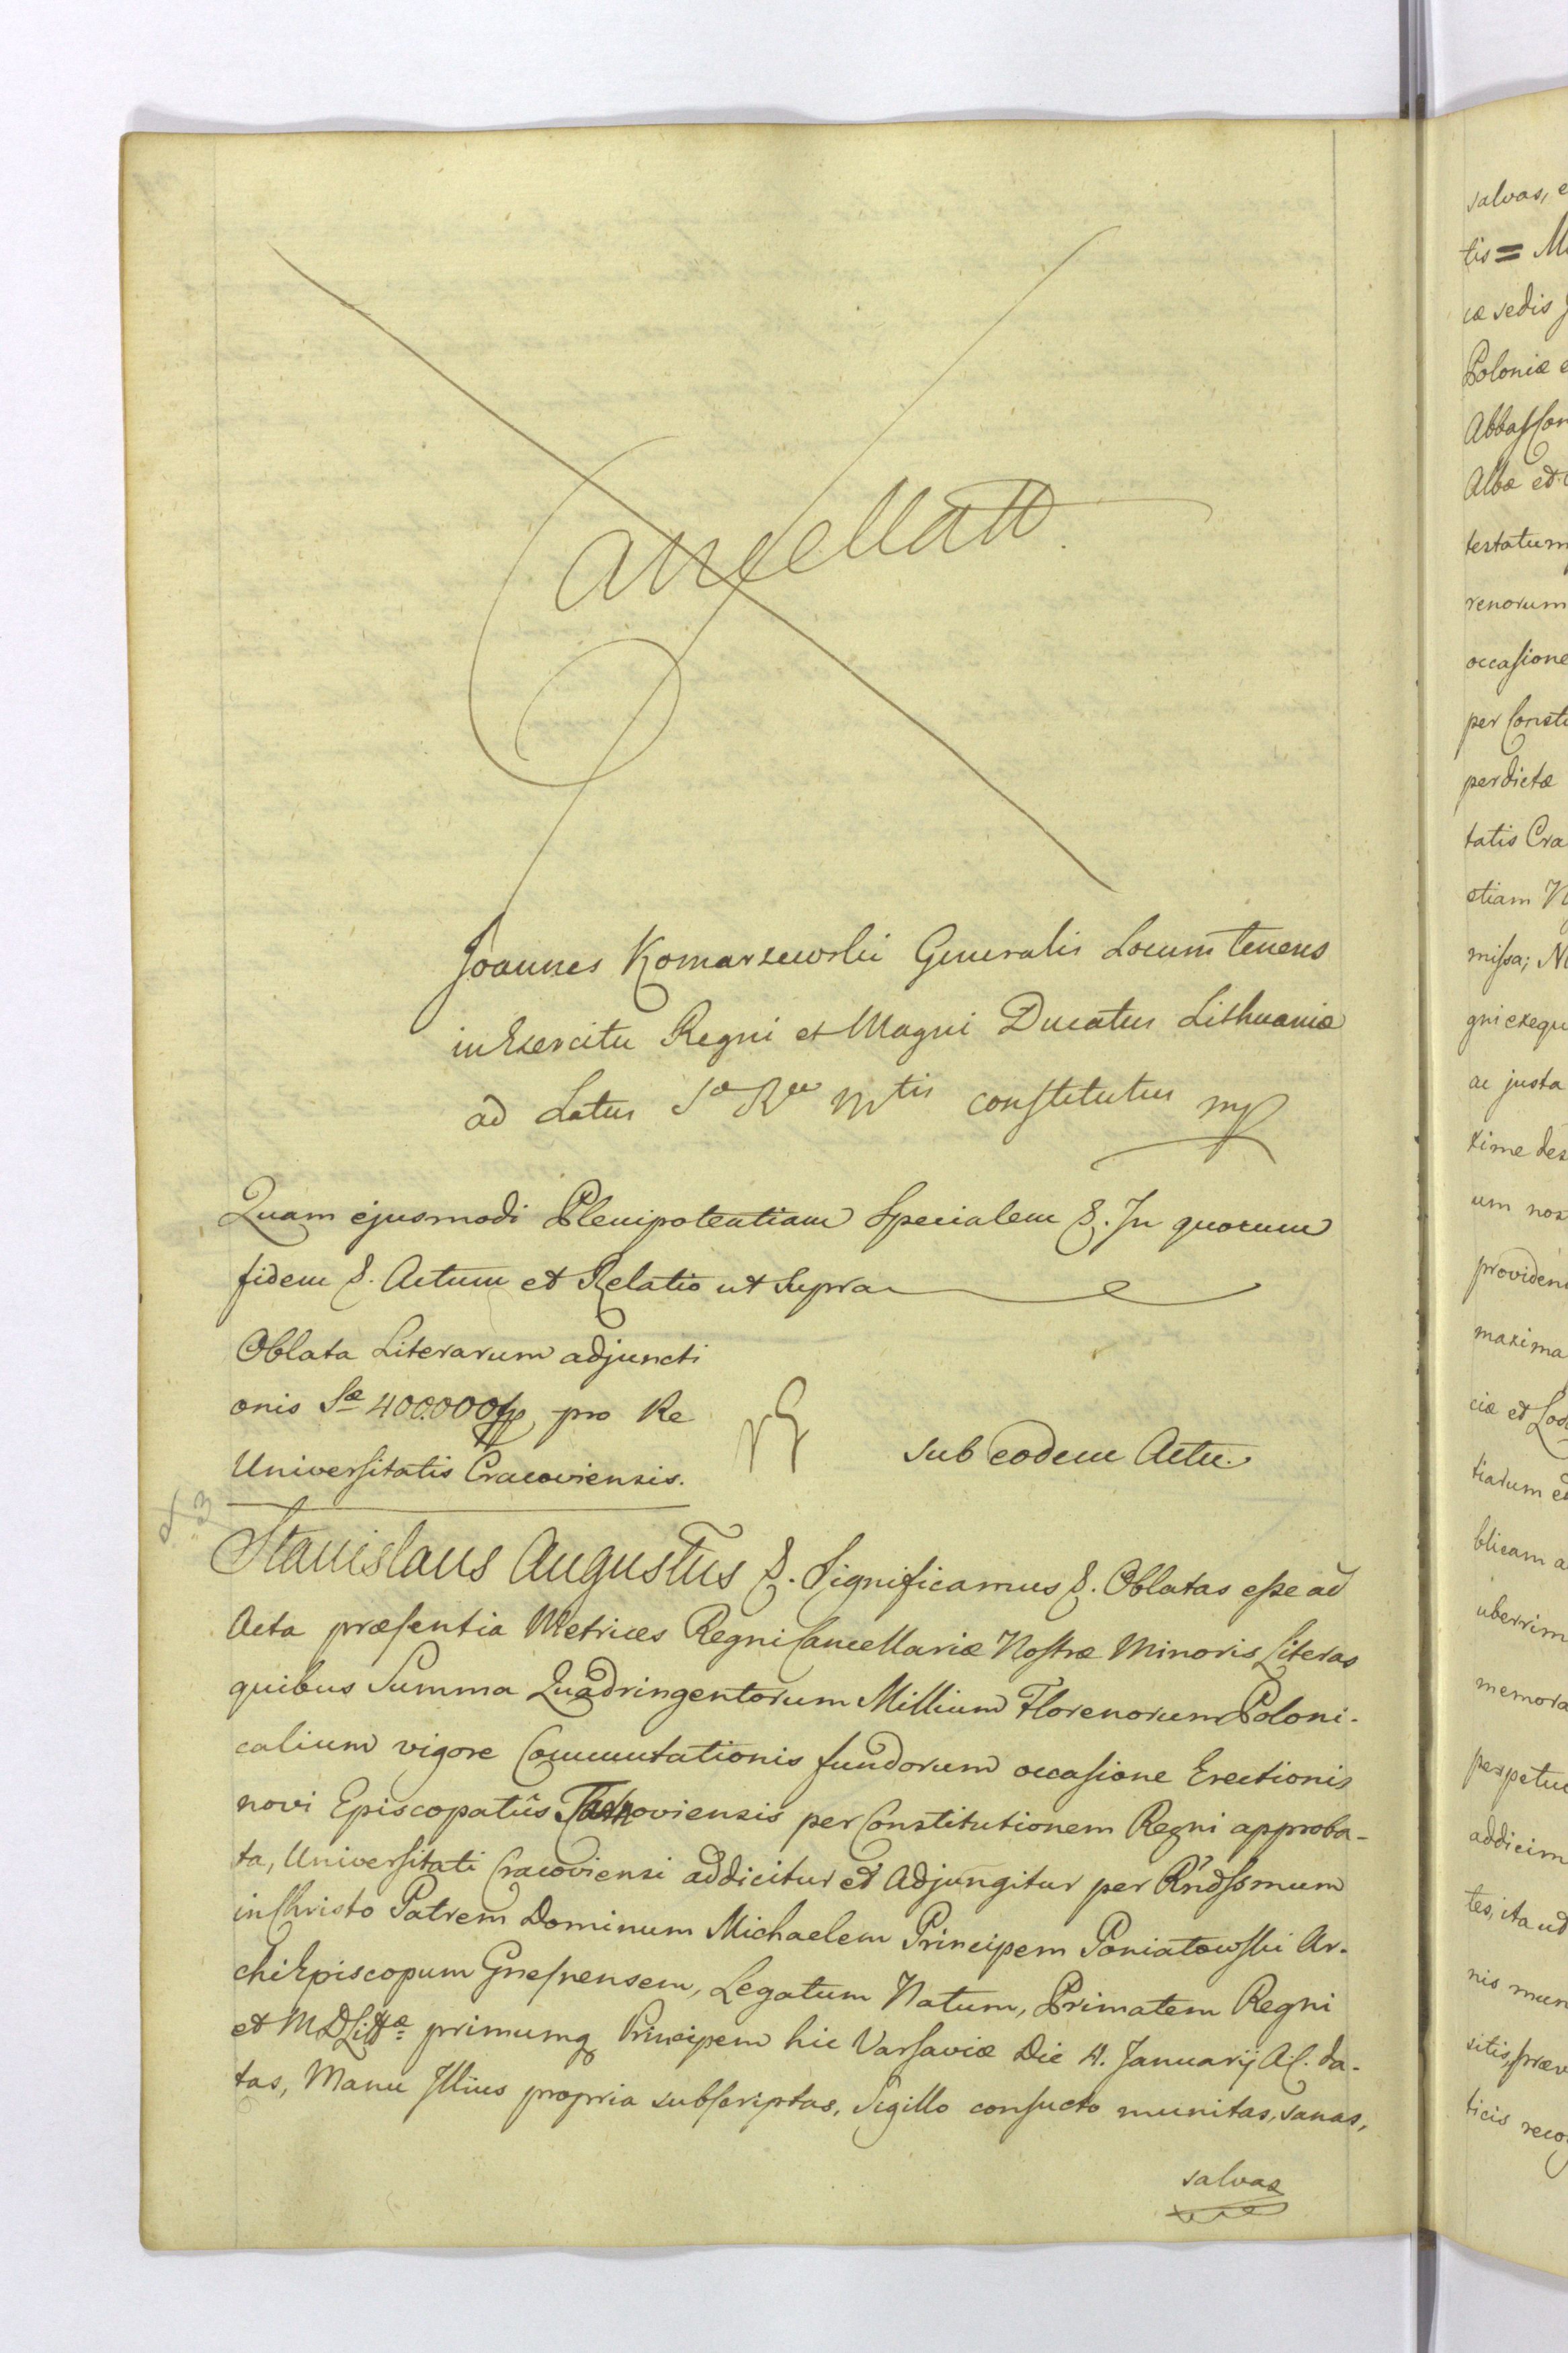 Cancellatt.
Joannes Komarzewski Generalis Locum tenens
in Exercitu Regni et Magni Ducatus Lithuaniæ
ad Latus Sæ Ræ Mtis constitutus mp
Quam ejusmodi Plenipotentiam Specialem &. In quorum
fidem &. Actum et Relatio ut Supra
Oblata Literarum adjuncti
onis Sæ 400.000 fp pro Re
Universitatis Cracoviensis.
sub eodem Actu.
Stanislaus Augustus &. Significamus &. Oblatas esse ad
Acta præsentia Metrices Regni Cancellariæ Nostræ Minoris Literas
quibus Summa Quadringentorum Millium Florenorum Poloni-
calium vigore Commutationis fundorum occasione Erectionis
novi Episcopatûs Tarnoviensis per Constitutionem Regni approba-
ta, Universitati Cracoviensi addicitur et Adjungitur per Rndssmum
in Christo Patrem Dominum Michaelem Principem Poniatowski Ar-
chiEpiscopum Gnesnensem, Legatum Natum, Primatem Regni
et MDLittæ primumq Principem hic Varsaviæ Die 4. Januarij A.C. da-
tas, Manu Illius propria subscriptas, Sigillo consueto munitas, sanas,
salvas
salvas, e
tis = M
cæ sedis
Poloniæ e
Abbass Con
Albæ et
testatum
renorum
occasione
per Consti
perdictæ
tatis Cra
etiam N
missa; N
gni exequ
ac justa
xime des
um nos
providen
maxima
ciæ et Lod
tiarum e
blicam a
uberrim
memora
perpetuo
addicim
tes, ita ut
nis mun
sitis, præv
ticis reco